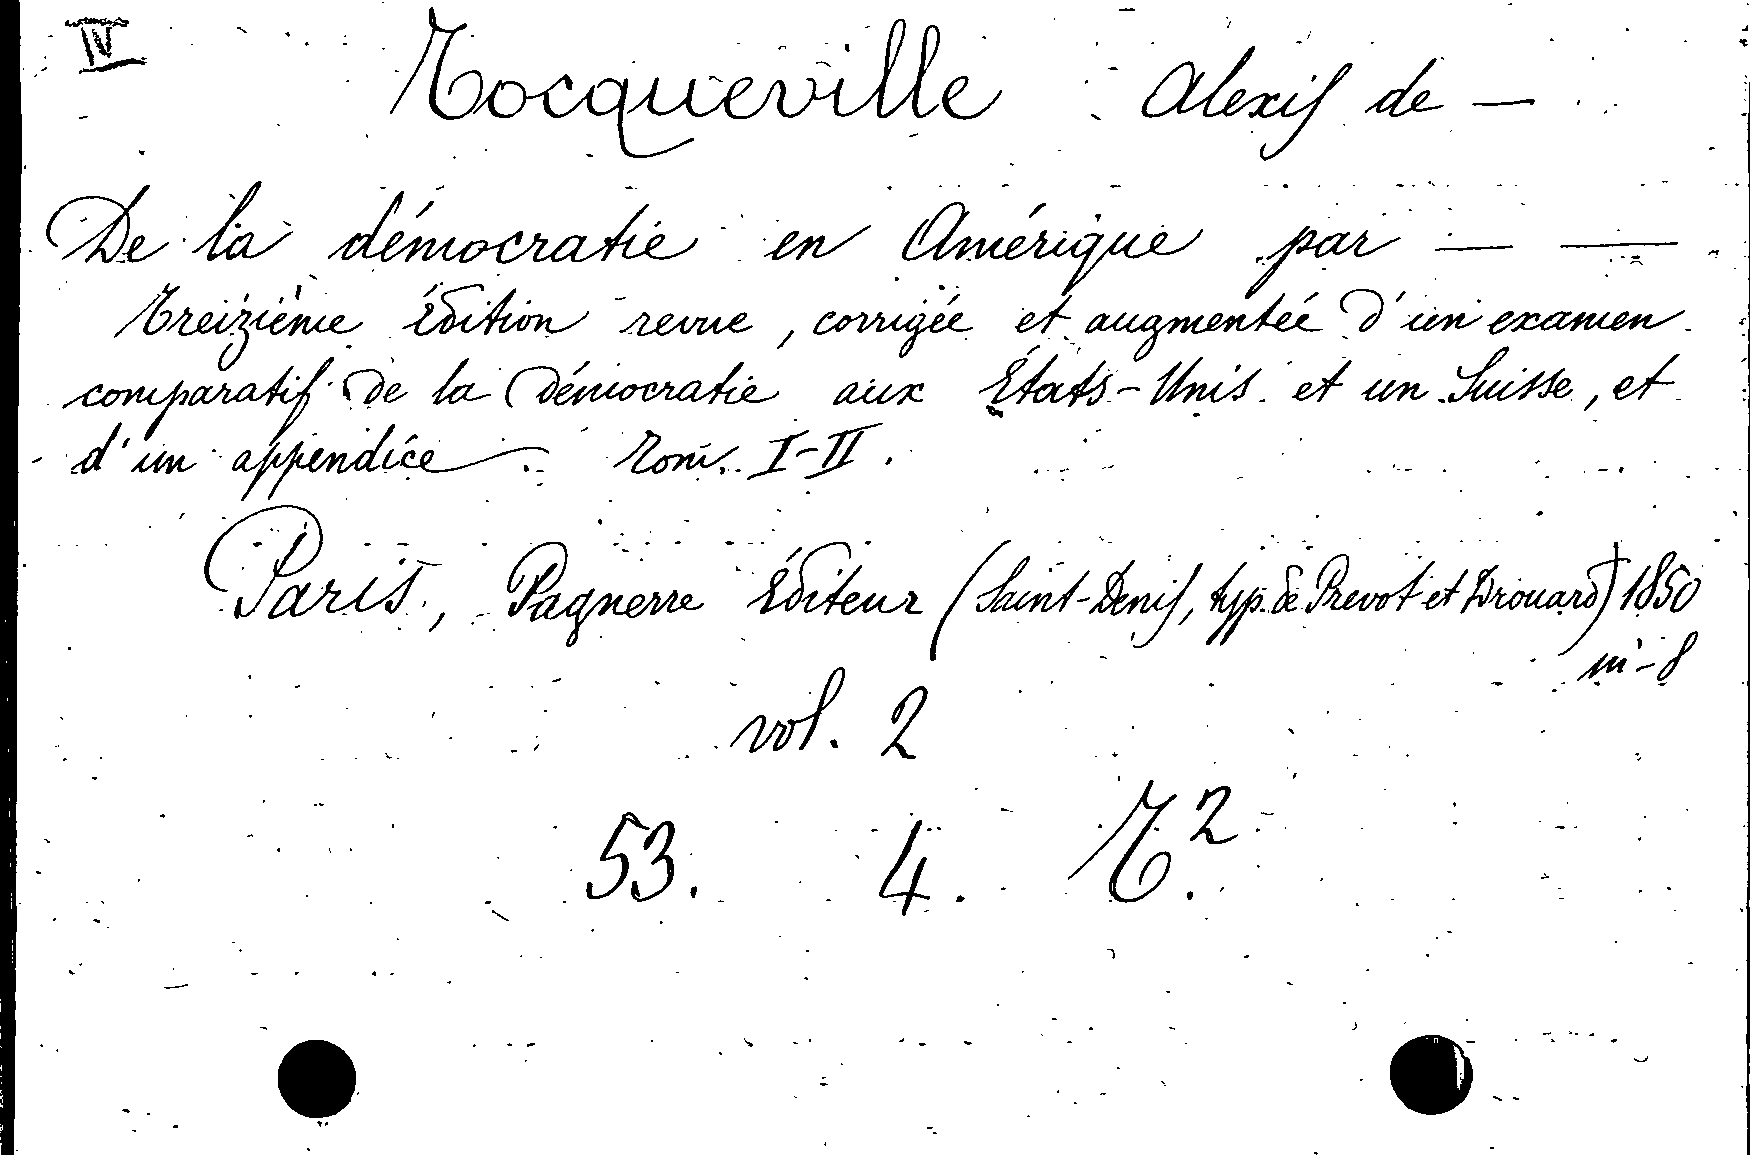 IV
Tocqueville Alexis de —
De la démocratie en Amérique par — —
Treizième édition revue, corrigée et augmentée d'un examen
comparatif de la démocratie aux États-Unis et un Suisse, et
d'un appendice. Tom. I-II.
Paris, Pagnerre éditeur (Saint-Denis, typ. de Prevot et Drouard) 1850
in-8
vol. 2
53. 4. T².